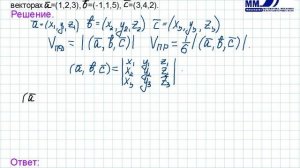 векторах a̅=(1,2,3), b̅=(-1,1,5), c̅=(3,4,2).
ММ
Решение.
a̅=(x₁,y₁,z₁) b̅=(x₂,y₂,z₂) c̅=(x₃,y₃,z₃)
|(a̅,b̅,c̅)| V_ПР=1/6|(a̅,b̅,c̅)|
(a̅,b̅,c̅)=|x₁ y₁ z₁|
|x₂ y₂ z₂|
|x₃ y₃ z₃|
(a̅
Ответ: